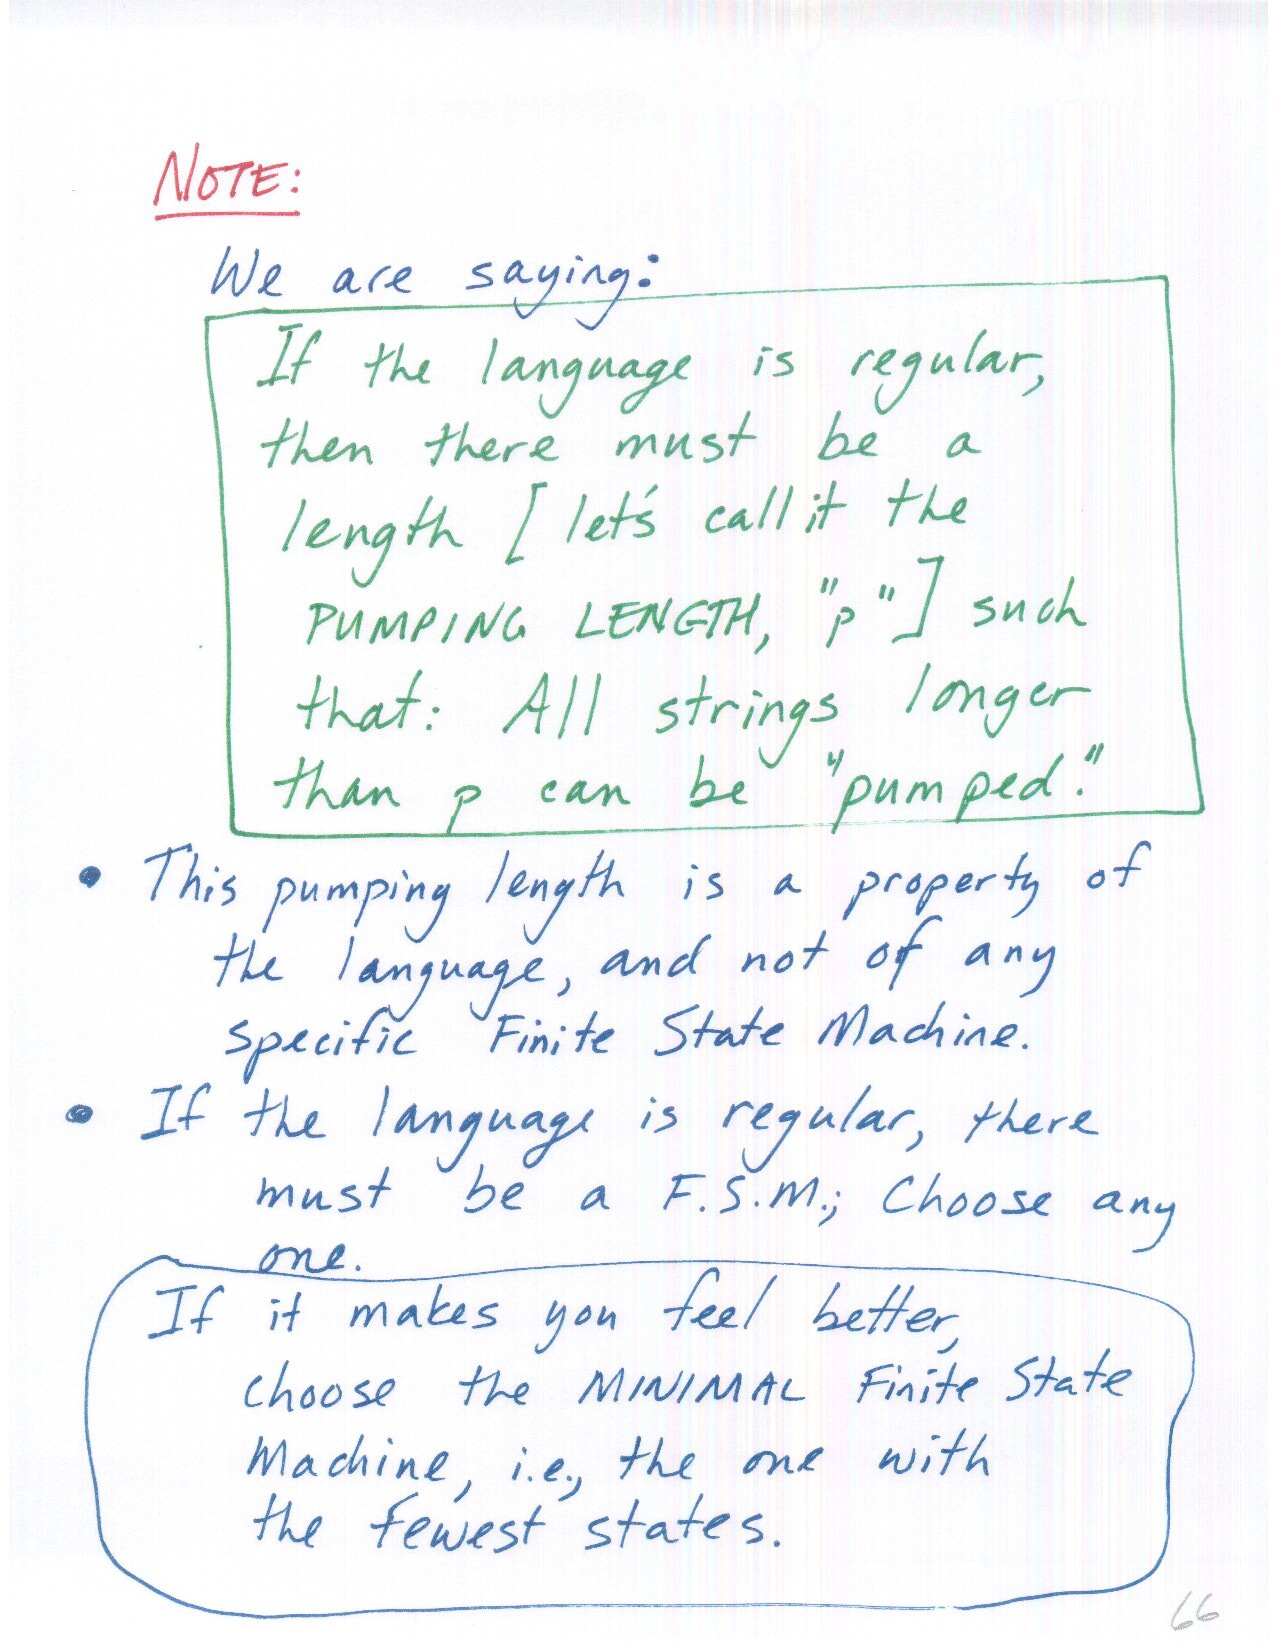 NOTE:
We are saying:
If the language is regular,
then there must be a
length [let's call it the
PUMPING LENGTH, "p"] such
that: All strings longer
than p can be "pumped."
• This pumping length is a property of
the language, and not of any
specific Finite State Machine.
• If the language is regular, there
must be a F.S.M.; Choose any
one.
If it makes you feel better,
choose the MINIMAL Finite State
Machine, i.e., the one with
the fewest states.
66